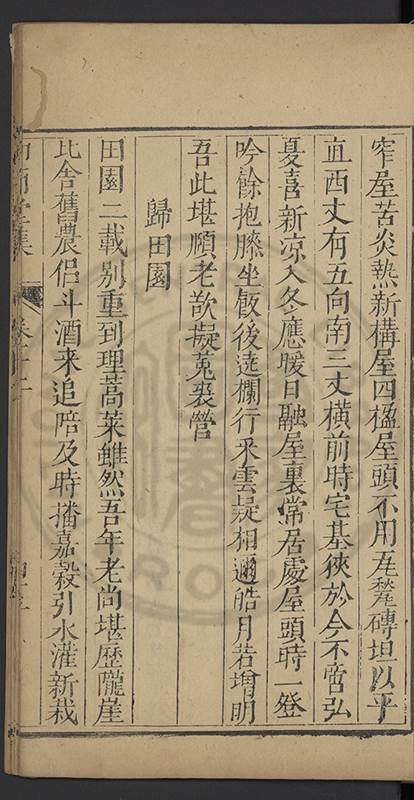 窄屋苦炎熱新構屋四楹屋頭不用瓦甃磚坦以平
直西丈有五向南三丈橫前時宅基狹於今不啻弘
夏喜新凉入冬應暖日融屋裏常居處屋頭時一登
吟餘抱膝坐飯後遶欄行釆雲疑相邇皓月若增明
吾此堪順老欲擬菟裘營
歸田園
田園二載別重到理蒿萊雖然吾年老尚堪歷隴崖
比舍舊農侣斗酒来追陪及時播嘉穀引水灌新栽
集 卷十二